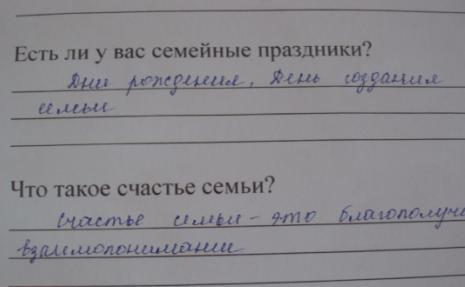 Есть ли у вас семейные праздники?
Дни рождения, День создания
семьи
Что такое счастье семьи?
Счастье семьи - это благополучи
взаимопонимании